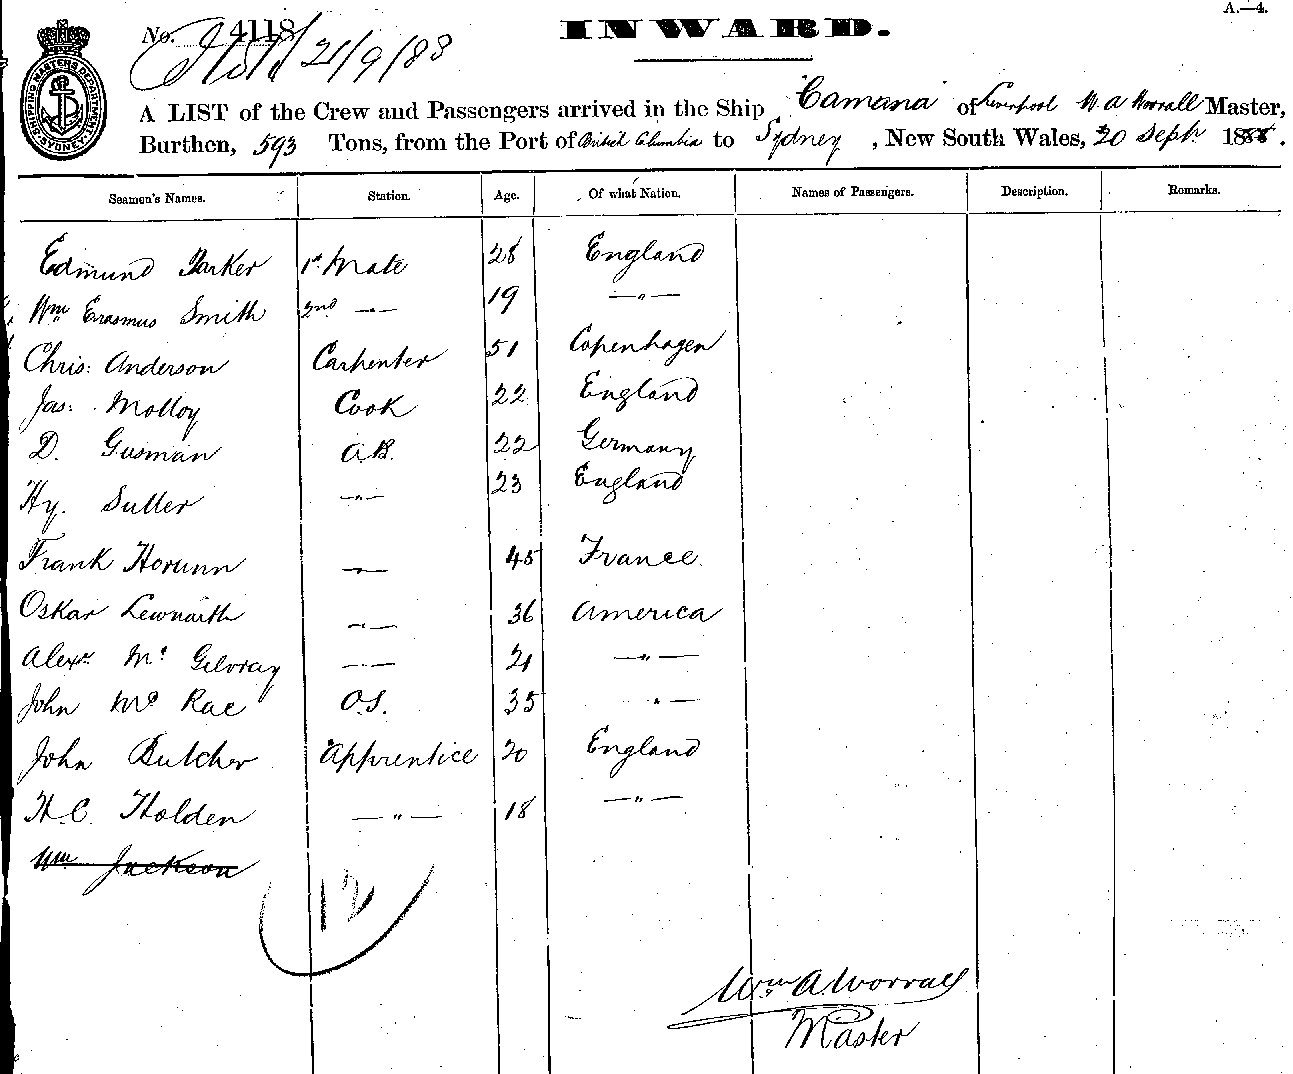 A.—4.
No. 4118
INWARD.
21/9/88
SHIPPING MASTERS DEPARTMENT SYDNEY
A LIST of the Crew and Passengers arrived in the Ship Camana of Liverpool W. A Worrall Master,
Burthen, 593 Tons, from the Port of British Columbia to Sydney, New South Wales, 20 Sept 188
Seamen's Names. Station. Age. Of what Nation. Names of Passengers. Description. Remarks.
Edmund Parker 1st Mate 28 England
Wm Erasmus Smith 2nd —"— 19 —"—
Chris: Anderson Carpenter 51 Copenhagen
Jas: Molloy Cook 22 England
D. Gusman A.B. 22 Germany
Hy. Suller —"— 23 England
Frank Horunn —"— 45 France
Oskar Lewnaith —"— 36 America
Alexr Mc Gilvray —"— 21 —"—
John Mc Rae O.S. 35 " —
John Butcher Apprentice 20 England
H.C. Holden —"— 18 —"—
Wm Jackson
12
Wm A Worrall
Master